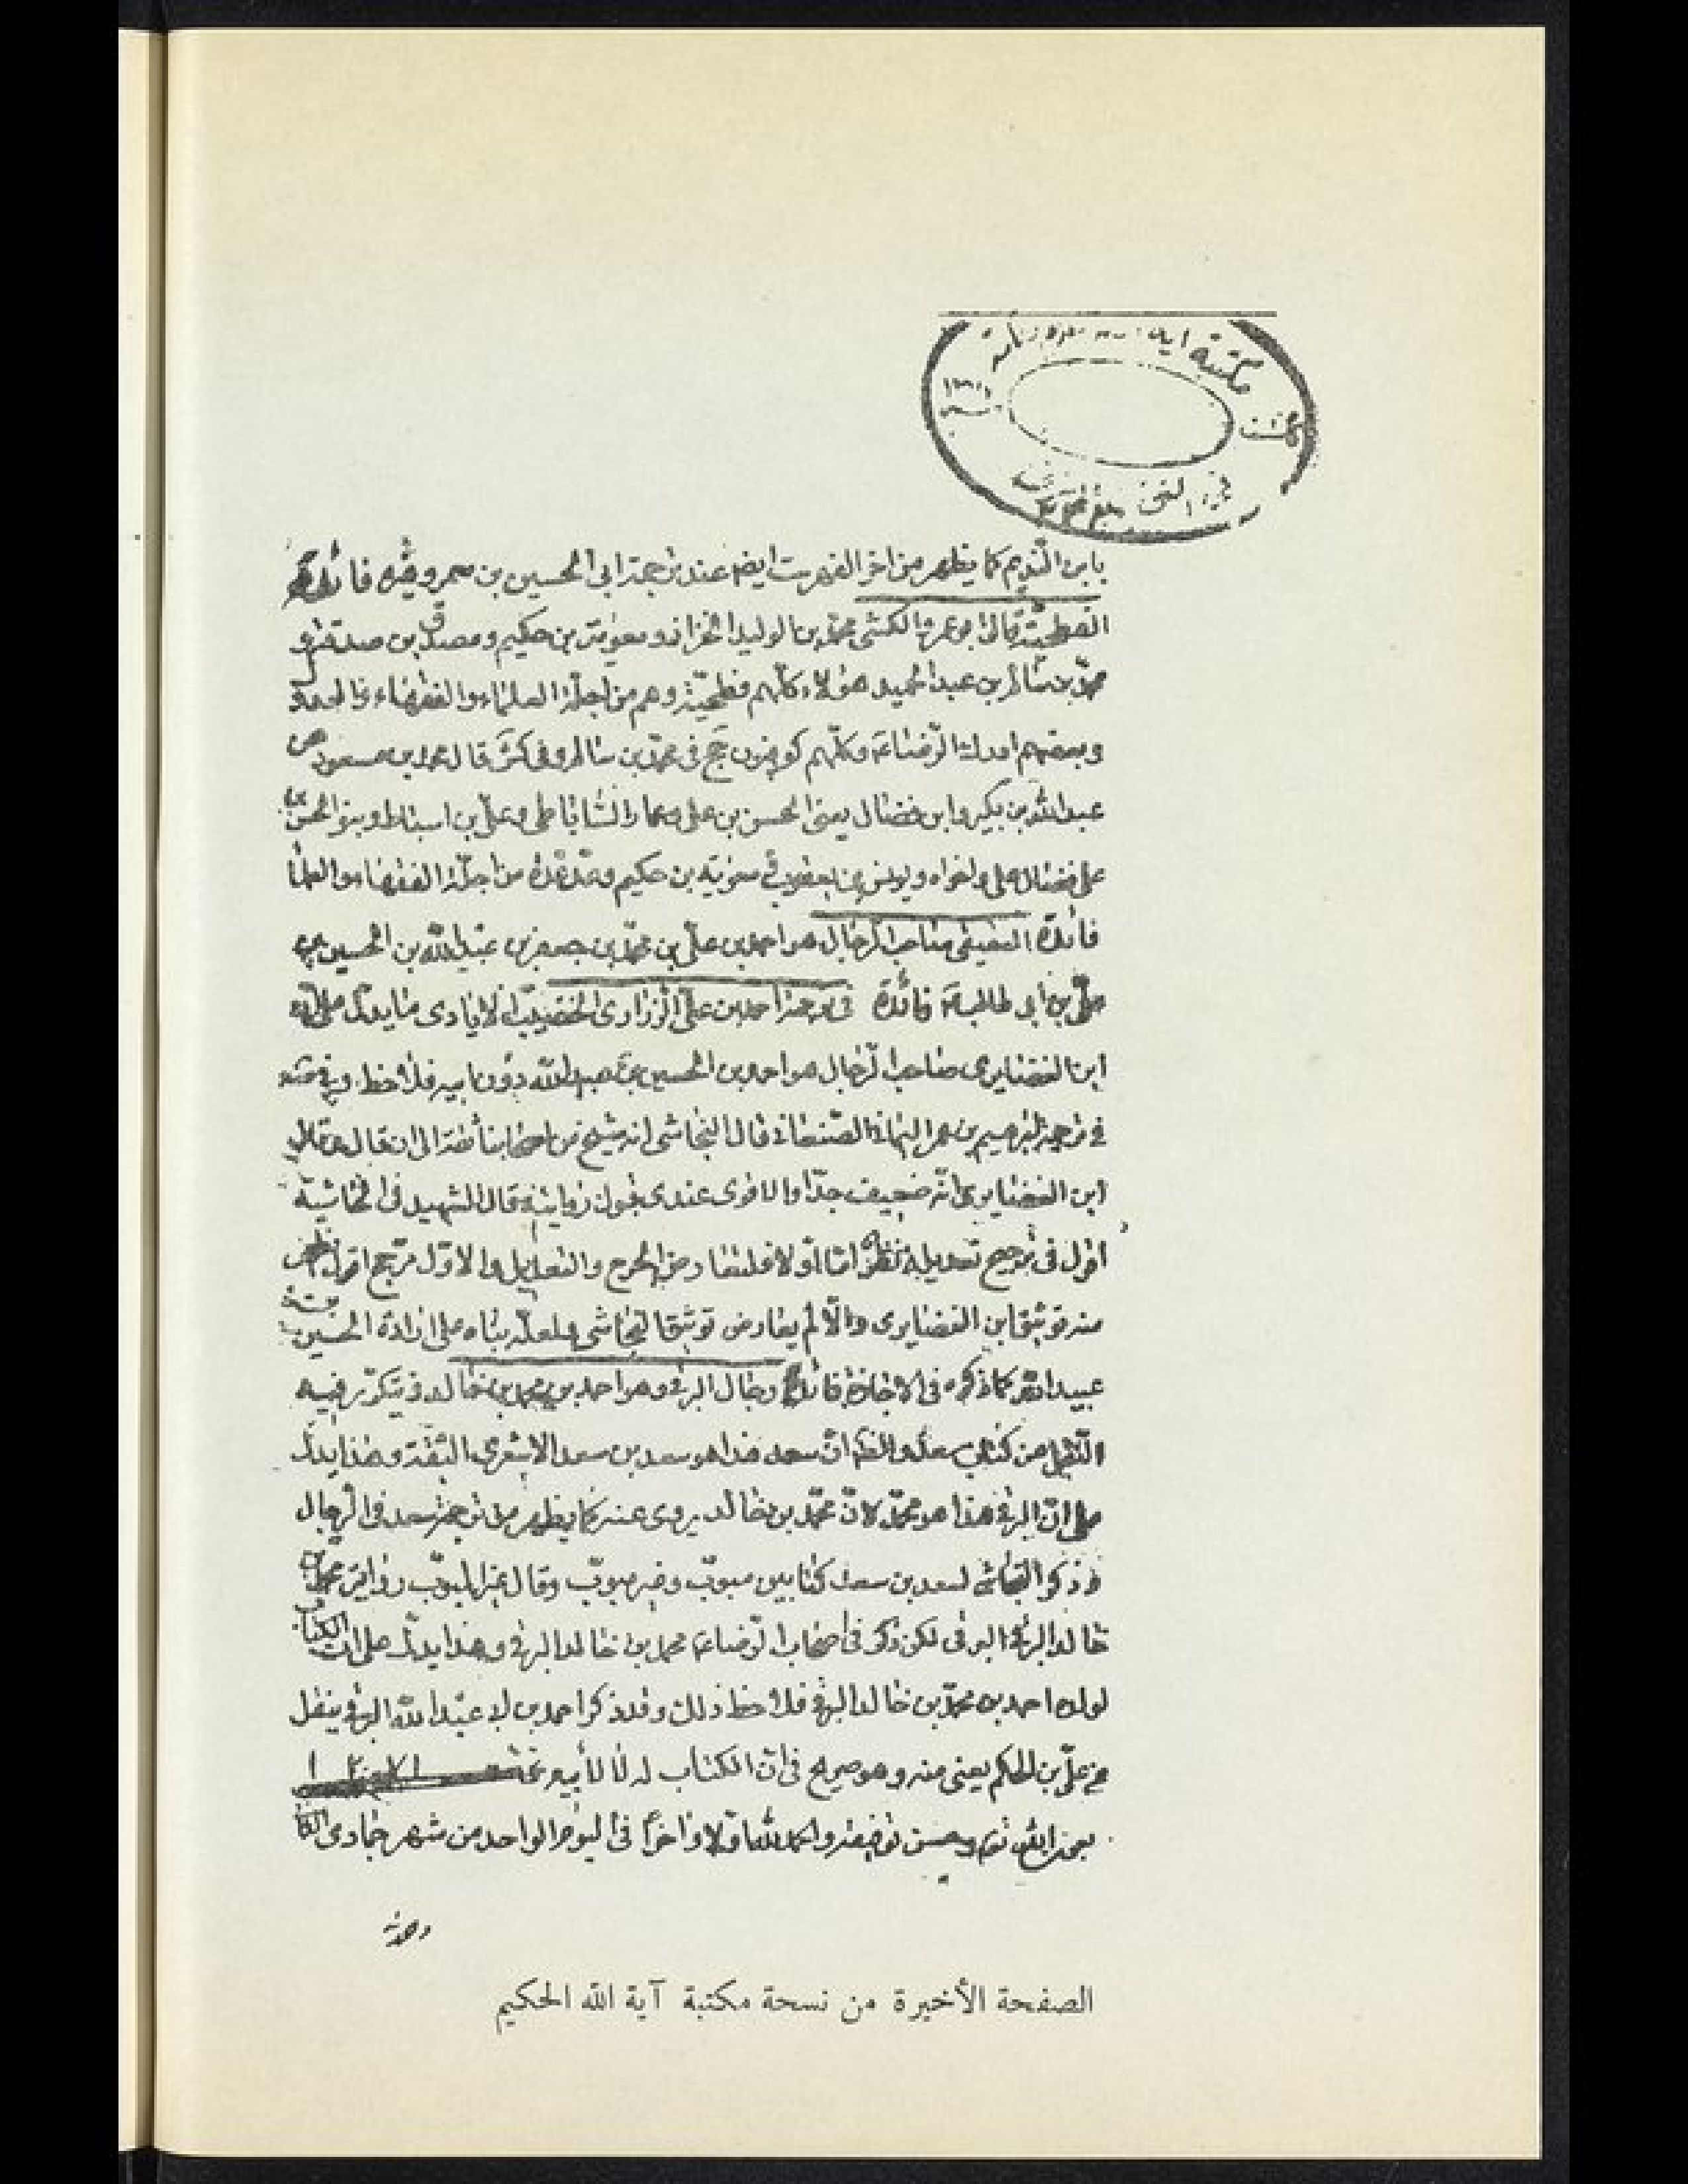 مكتبة
بابن النديم كما يظهر من اخر الفهرست ايضا عند ترجمة ابي الحسين بن وغيره فائدة
الفطحية قال ابو عمرو الكشي محمد بن الوليد الخزاز ومعوية بن حكيم ومصدق بن صدقة و
محمد بن سالم بن عبد الحميد هؤلاء كلهم فطحية وهم من اجلة العلماء والفقهاء والعدول
وبعضهم ادرك الرضا وكلهم كوفيون في محمد بن سالم وفي كش قال محمد بن مسعود
عبد الله بن بكير وابن فضال يعني الحسن بن علي وعمار الساباطي وعلي بن اسباط وبنو الحسن بن
علي فضال علي واخواه ويونس بن يعقوب ومعوية بن حكيم وعد عدة من اجلة الفقهاء والعلما
فائدة العقيقي صاحب الرجال هو احمد بن علي بن محمد بن جعفر بن عبد الله بن الحسين بن
علي بن ابي طالب فائدة في ترجمة احمد بن علي الرازي الخضيب الايادي ما يدل على ان
ابن الغضايري صاحب الرجال هو احمد بن الحسين بن عبيد الله دون ابيه فلاحظ
في ترجمة ابراهيم بن عمر اليماني الصنعاني قال النجاشي انه شيخ من اصحابنا ثقة الى ان قال
ابن الغضايري انه ضعيف جدا والاقوى عندي قبول روايته وقال الشهيد في الحاشية
اقول في ترجيح تعديله نظر اما اولا فلتعارض الجرح والتعديل والاول مرجح اقول
منه توثيق ابن الغضايري والا لم يعارض توثيق النجاشي ولعله بناه على ارادة الحسين بن
عبيد الله كما ذكره في الاجازة فائدة رجال البرقي وهو احمد بن محمد بن خالد يتكرر فيه
النقل من كتاب سعد والظ ان سعد هذا هو سعد بن سعد الاشعري الثقة وهذا يدل
على ان البرقي هذا هو محمد لان محمد بن خالد يروي عنه كما يظهر من ترجمة سعد في الرجال
وذكر النجاشي لسعد بن سعد كتابين مبوب وغير مبوب وقال غير المبوب رواية محمد بن
خالد البرقي لكن ذكر في اصحاب الرضا محمد بن خالد البرقي وهذا يدل على ان الكتاب
لولده احمد بن محمد بن خالد البرقي فلاحظ ذلك وقد ذكر احمد بن ابي عبد الله البرقي ينقل
عن علي بن الحكم يعني منه وهو صريح في ان الكتاب له لا لأبيه
بعون الله وحسن توفيقه والحمد لله اولا واخرا في اليوم الواحد من شهر جمادى
الصفحة الأخيرة من نسخة مكتبة آية الله الحكيم